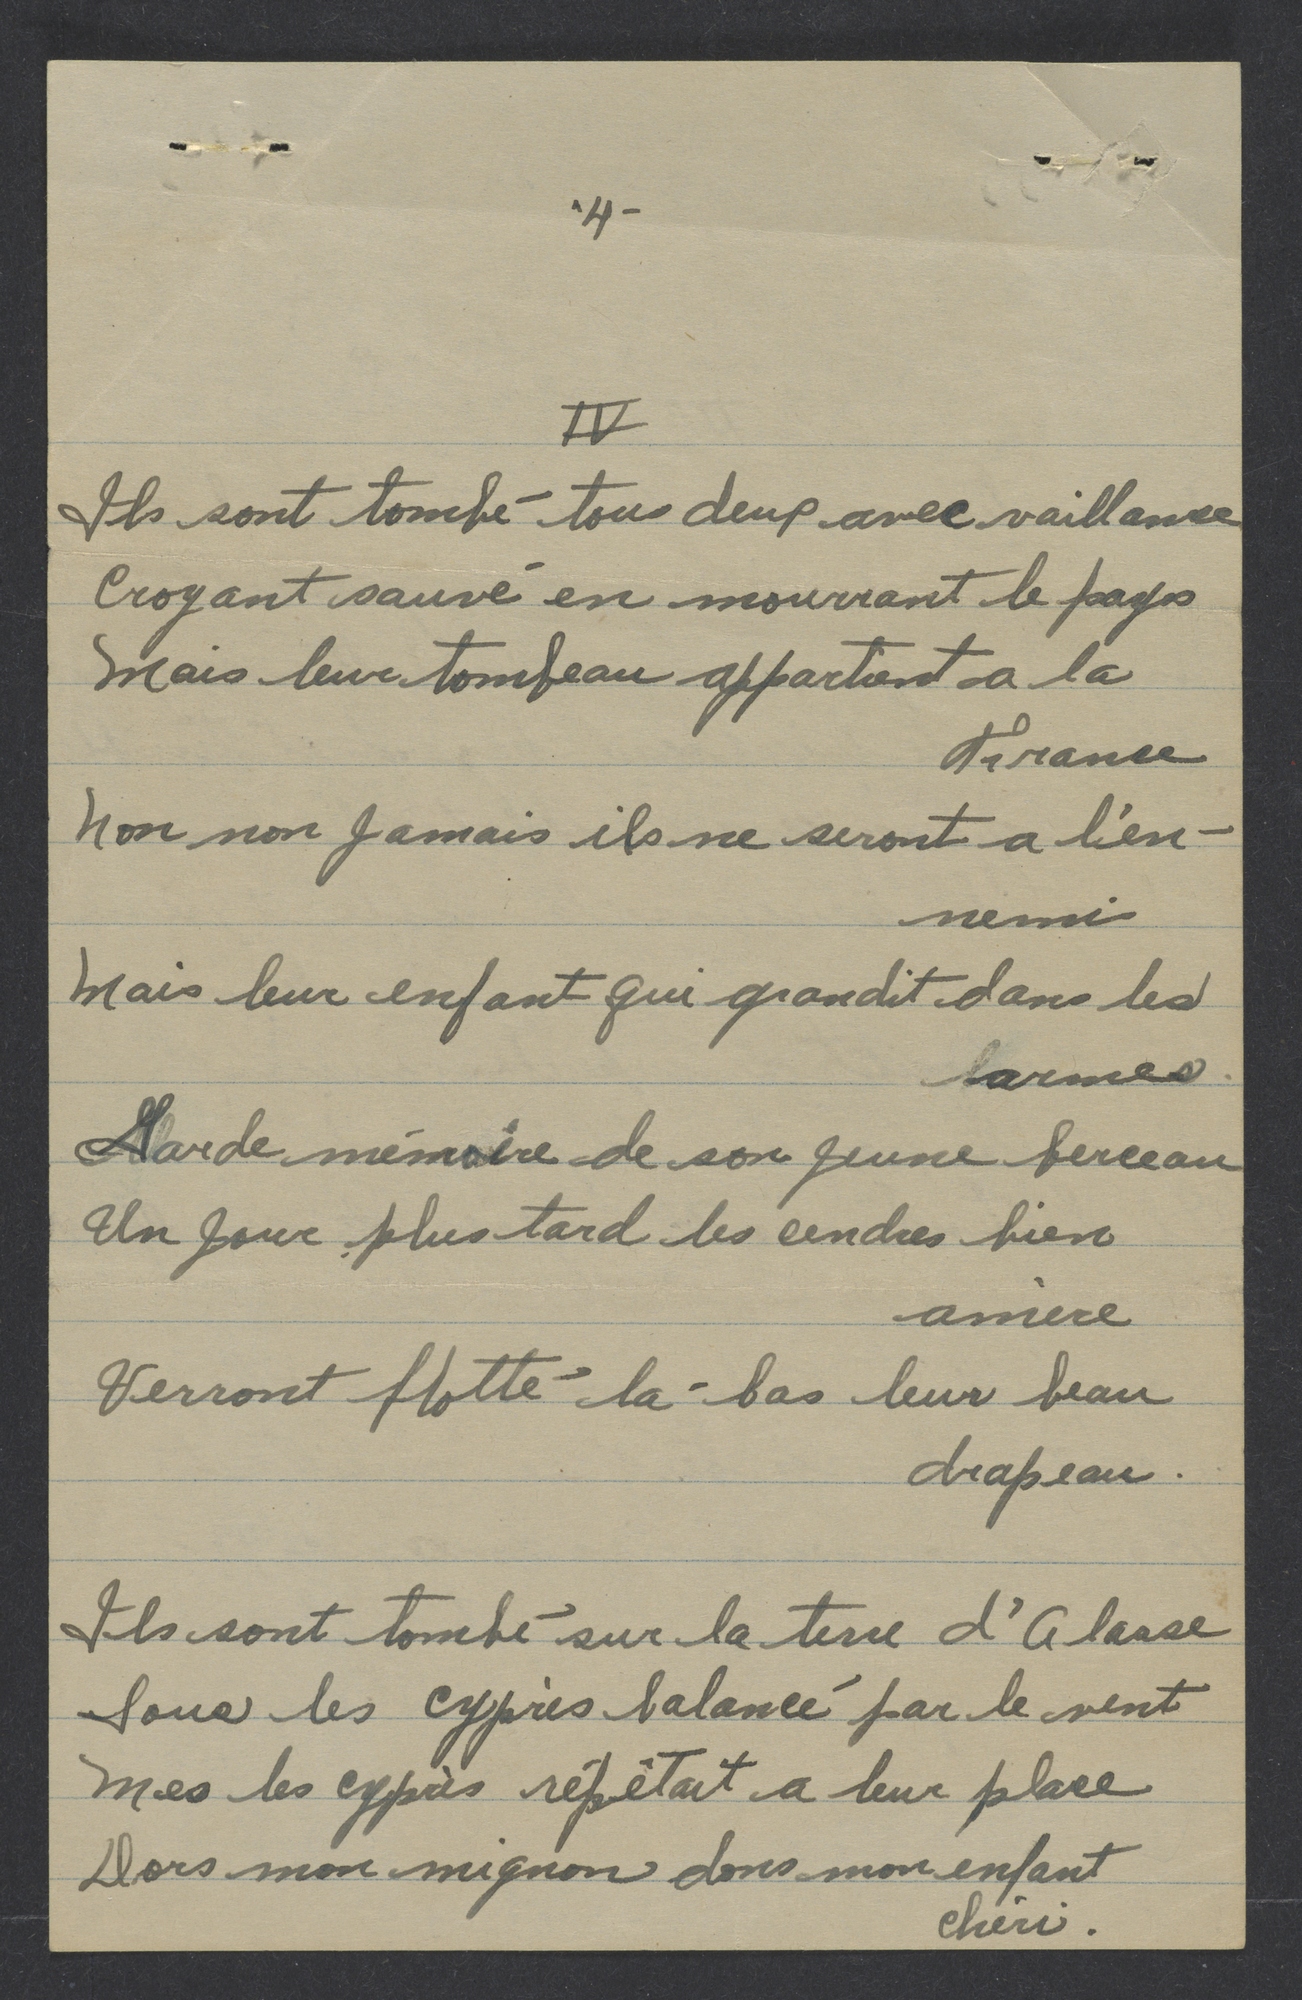 -4-
IV
Ils sont tombé tous deux avec vaillance
Croyant sauvé en mourrant le pays
Mais leur tombeau appartient a la
France
Non non jamais ils ne seront a l'en-
nemi
Mais leur enfant qui grandit dans les
larmes.
Garde mémoire de son jeune berceau
Un jour plus tard les cendres bien
amière
Verront flotté la-bas leur beau
drapeau.
Ils sont tombé sur la terre d'Alasse
Sous les cyprès balancé par le vent
Mes les cyprès répêtait a leur place
Dors mon mignon dors mon enfant
chéri.